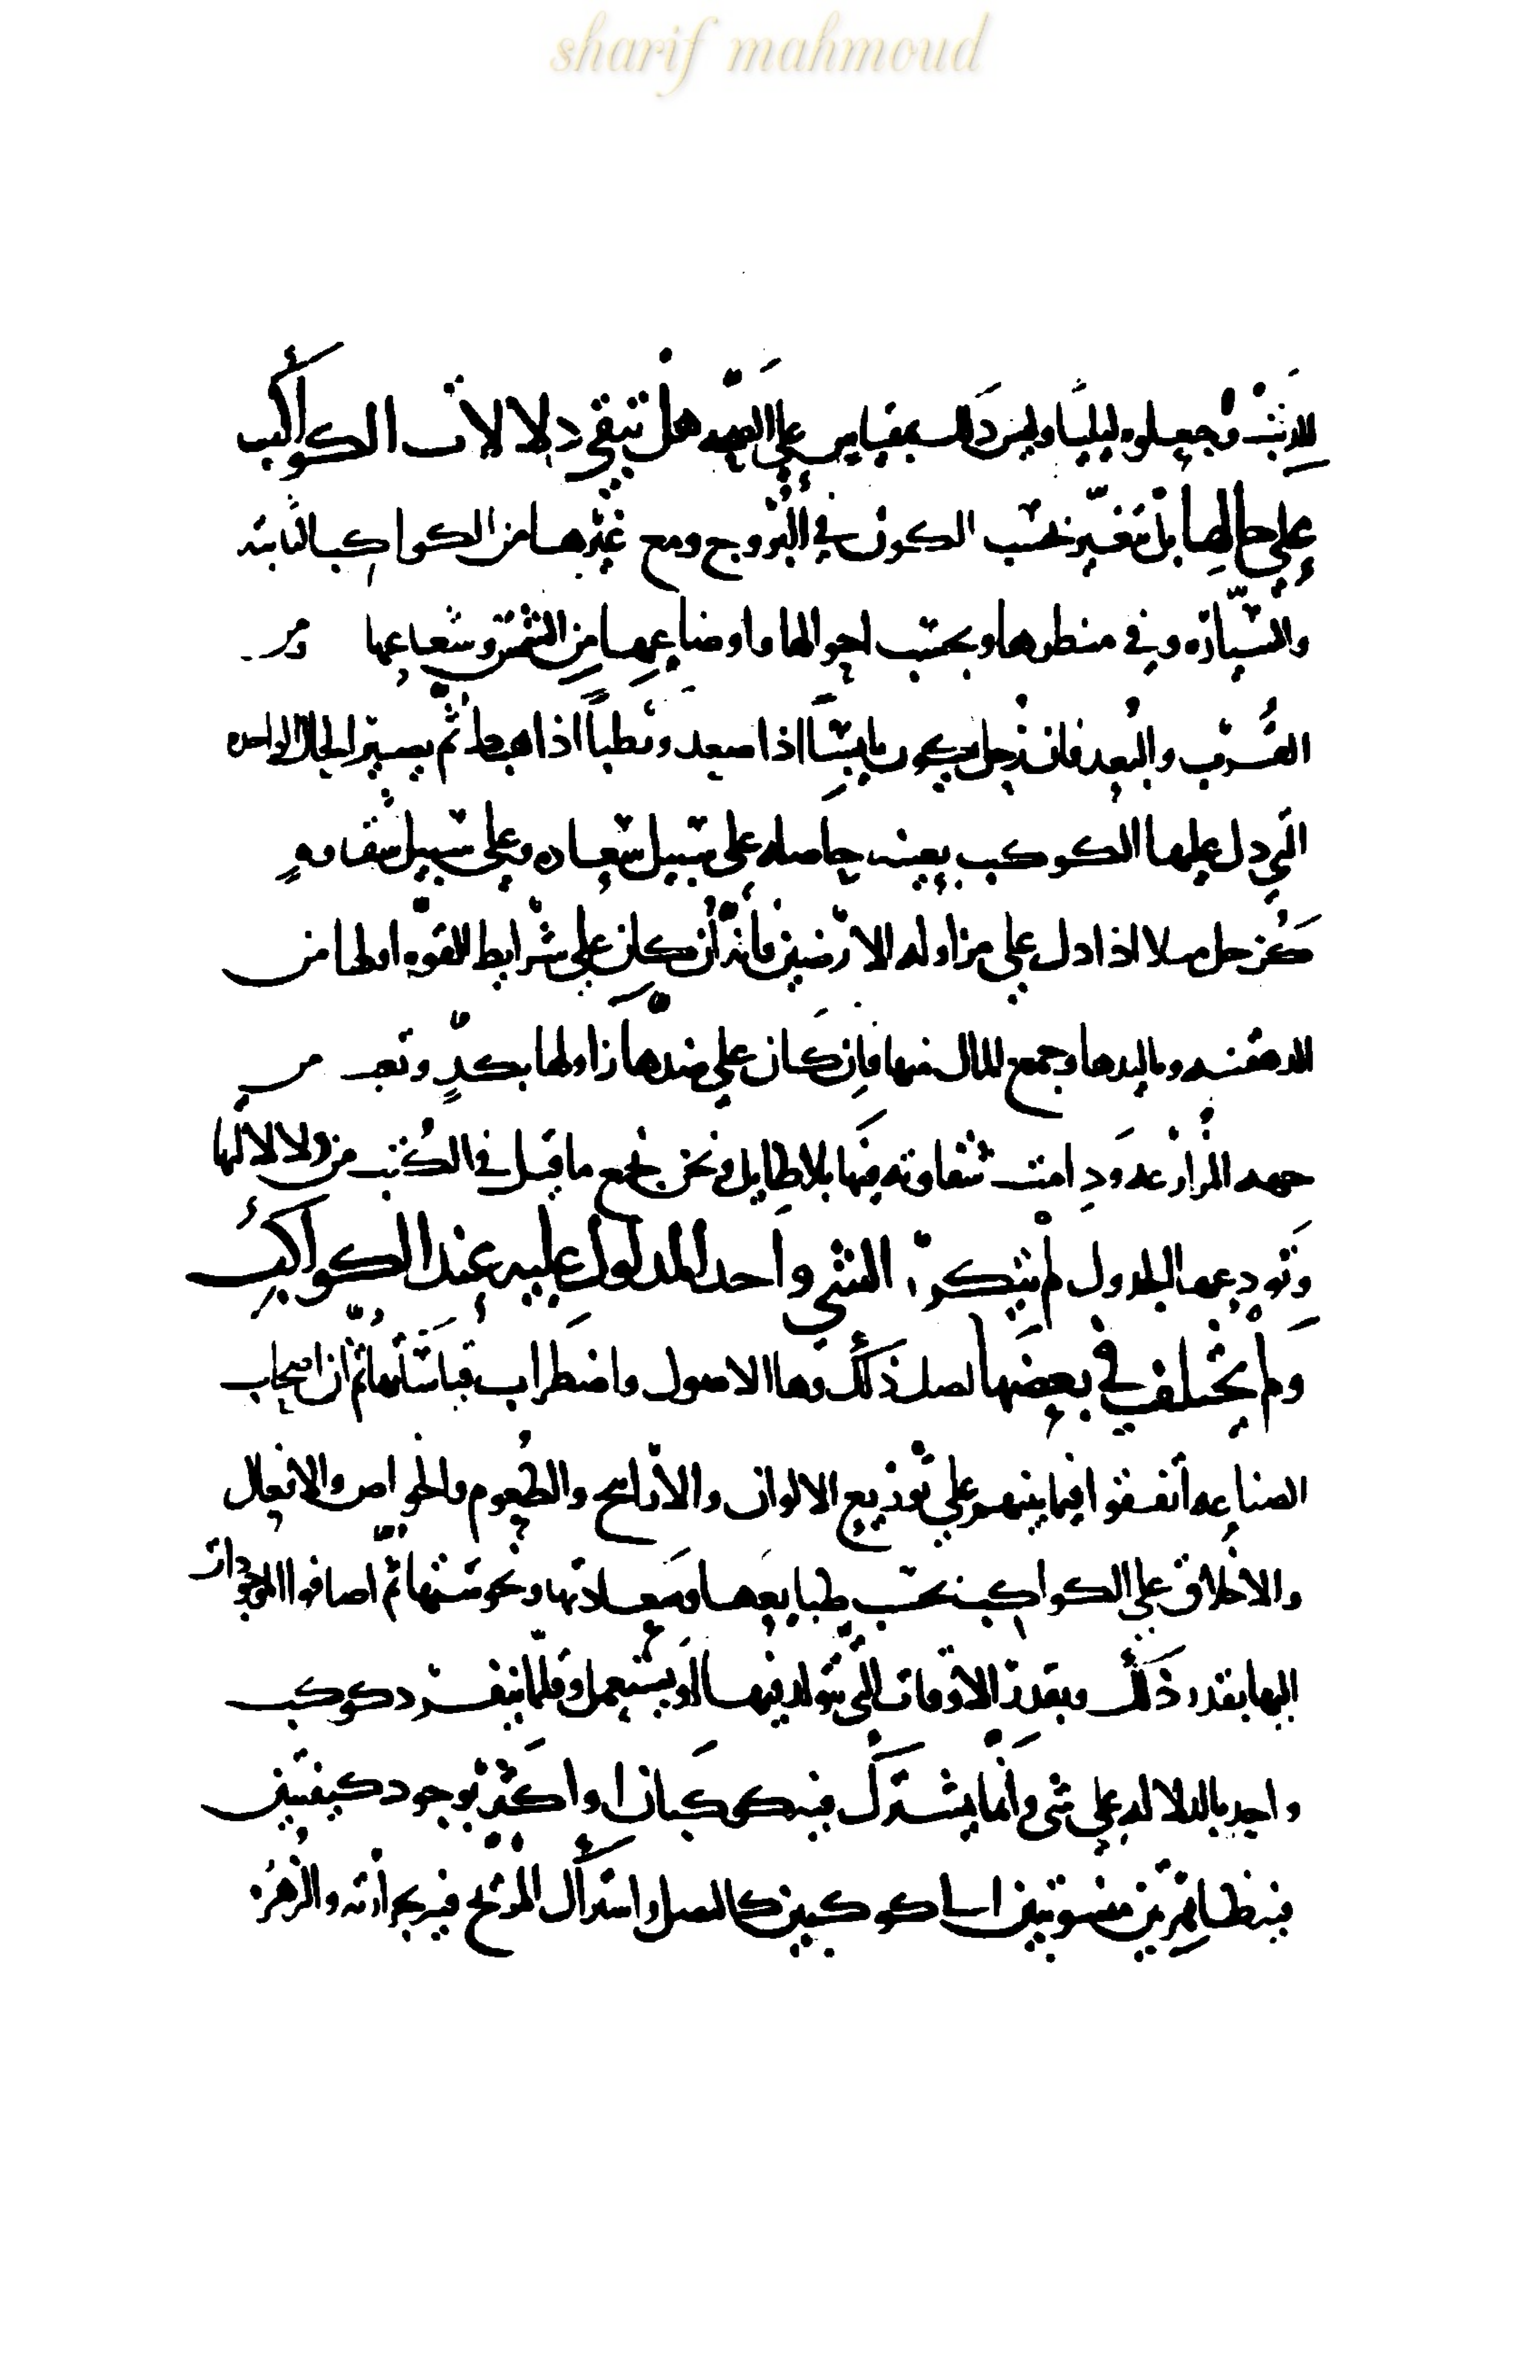 sharif mahmoud
وجعلوه ليليا وليس ذلك بمقياس على هل تبقى دلالات الكواكب
على حالها بل تتغير بحسب الكون في البروج ومع غيرها من الكواكب الثابته
والسيّارة وفي منظرها وبحسب احوالها واوضاعها من الشمس وشعاعها ومن
القُرب والبُعد فان زحل يكون يابسًا اذا صعد ورطباً اذا هبط ثمّ يصير الحال الواحده
التي دل عليها الكوكب بعينه حاصله على سبيل سعاده وعلى سبيل شقاوهٍ
كزحل مثلا اذا دل على مزاوله الارضين فأنّه أن كان على شرايط القوّه اولها من
الدهقنه وماليدها وجمع المال منها فإن كان على ضدّها زاولها بكدٍّ وتعب من
جهه المزارعه ودامت شقاوته فيها بلا طايل ونحن نجمع ما قيل في الكُتب من دلالالتها
ونودعها الجدول لم يتكرّر الشي واحد المدلول عليه عند الكواكب
ولم يختلف في بعضها لصل ذلك وها الاصول واضطراب قياساتها ثمّ ان اصحاب
الصناعه أتفقوا فيما بينهم على توزيع الالوان والأراىح والطُعوم والخواص والافعال
والاخلاق على الكواكب بحسب طبايعها وسعادتها ونحوستها ثمّ اضافوا الموجودات
اليها بقدر ذلك وبقدر الاوقات التي تتولد فيها او يستعمل وقلّما ينفرد كوكب
واحد بالدلاله على شى وانّما يشترك فيه كوكبان او اكثر بوجود كيفيتين
فيه ظاهرتين منسوبتين الى كوكبين كالبصل واشتراك المرّيخ فيه بحرارته والزهره